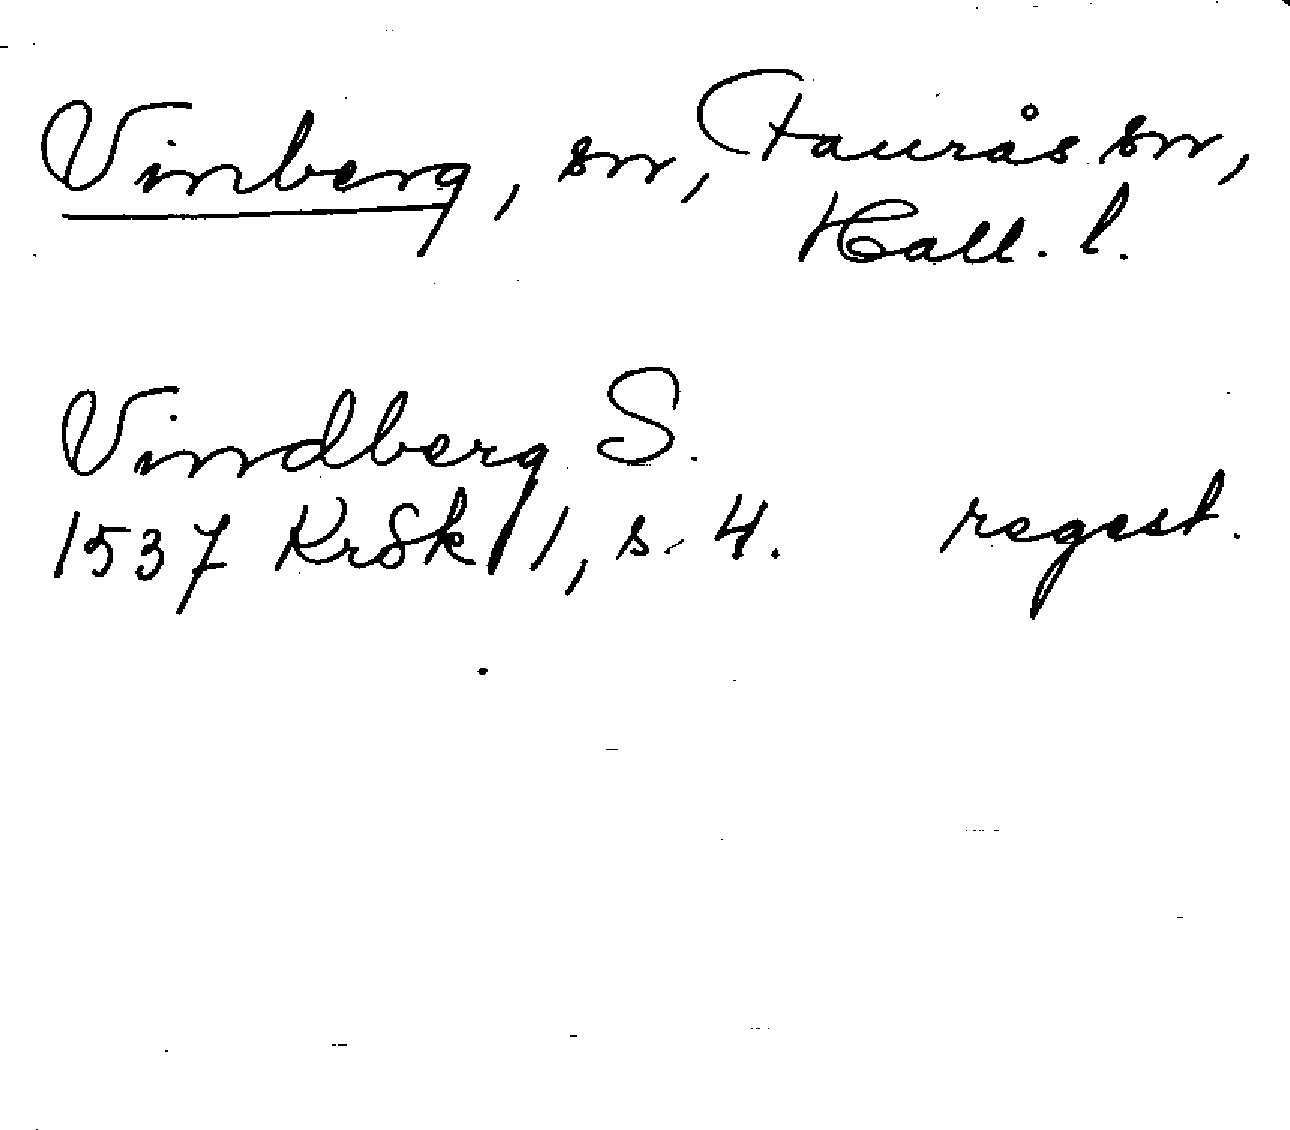 Vinberg, sn, Faurås sn,
Hall. l.
Vindberg S.
1537 KrSk 1, s. 4. regest.